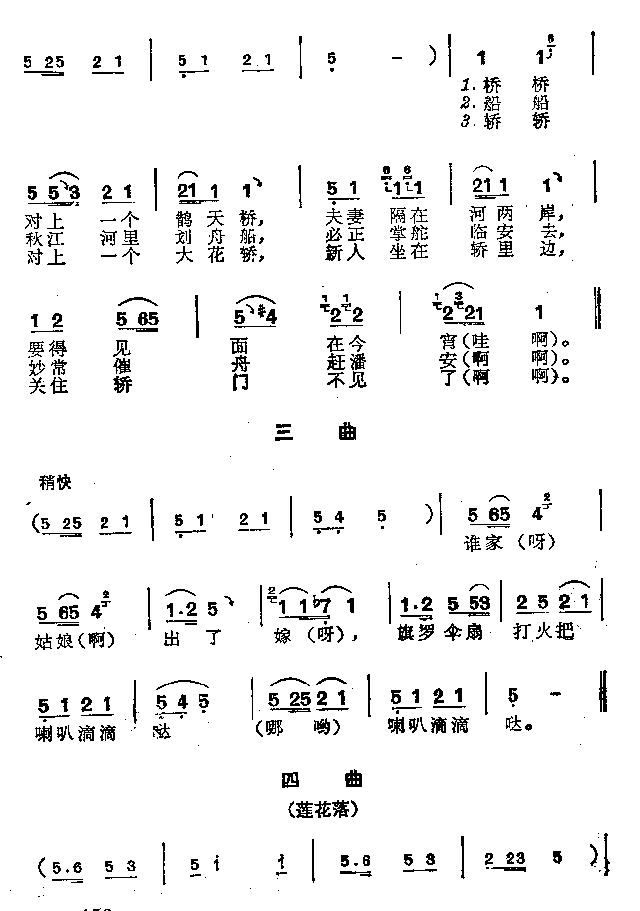 5 25 2 1 | 5 1 2 1 | 5 - ) | 1 1
1.桥 桥
2.船 船
3.轿 轿
5 5 3 2 1 | 21 1 1 | 5 1 1 1 | 21 1 1
对上 一个 鹊天桥, 夫妻 隔在 河两岸,
秋江 河里 划舟船, 必正 掌舵 临安去,
对上 一个 大花轿, 新人 坐在 轿里边,
1 2 5 65 | 5 #4 2 2 | 2 21 1
要得 见 面 在今 宵(哇 啊)。
妙常 催 舟 赶潘 安(啊 啊)。
关住 轿 门 不见 了(啊 啊)。
三 曲
稍快
(5 25 2 1 | 5 1 2 1 | 5 4 5 ) | 5 65 4
谁家(呀)
5 65 4 | 1·2 5 | 1 1 b7 1 | 1·2 5 53 | 2 5 2 1
姑娘(啊) 出 了 嫁(呀), 旗罗伞扇 打火把
5 1 2 1 | 5 4 5 | 5 25 2 1 | 5 1 2 1 | 5 -
喇叭滴滴 哒 (哪 哟) 喇叭滴滴 哒。
四 曲
(莲花落)
(5.6 5 3 | 5 i i | 5.6 5 3 | 2 23 5 )